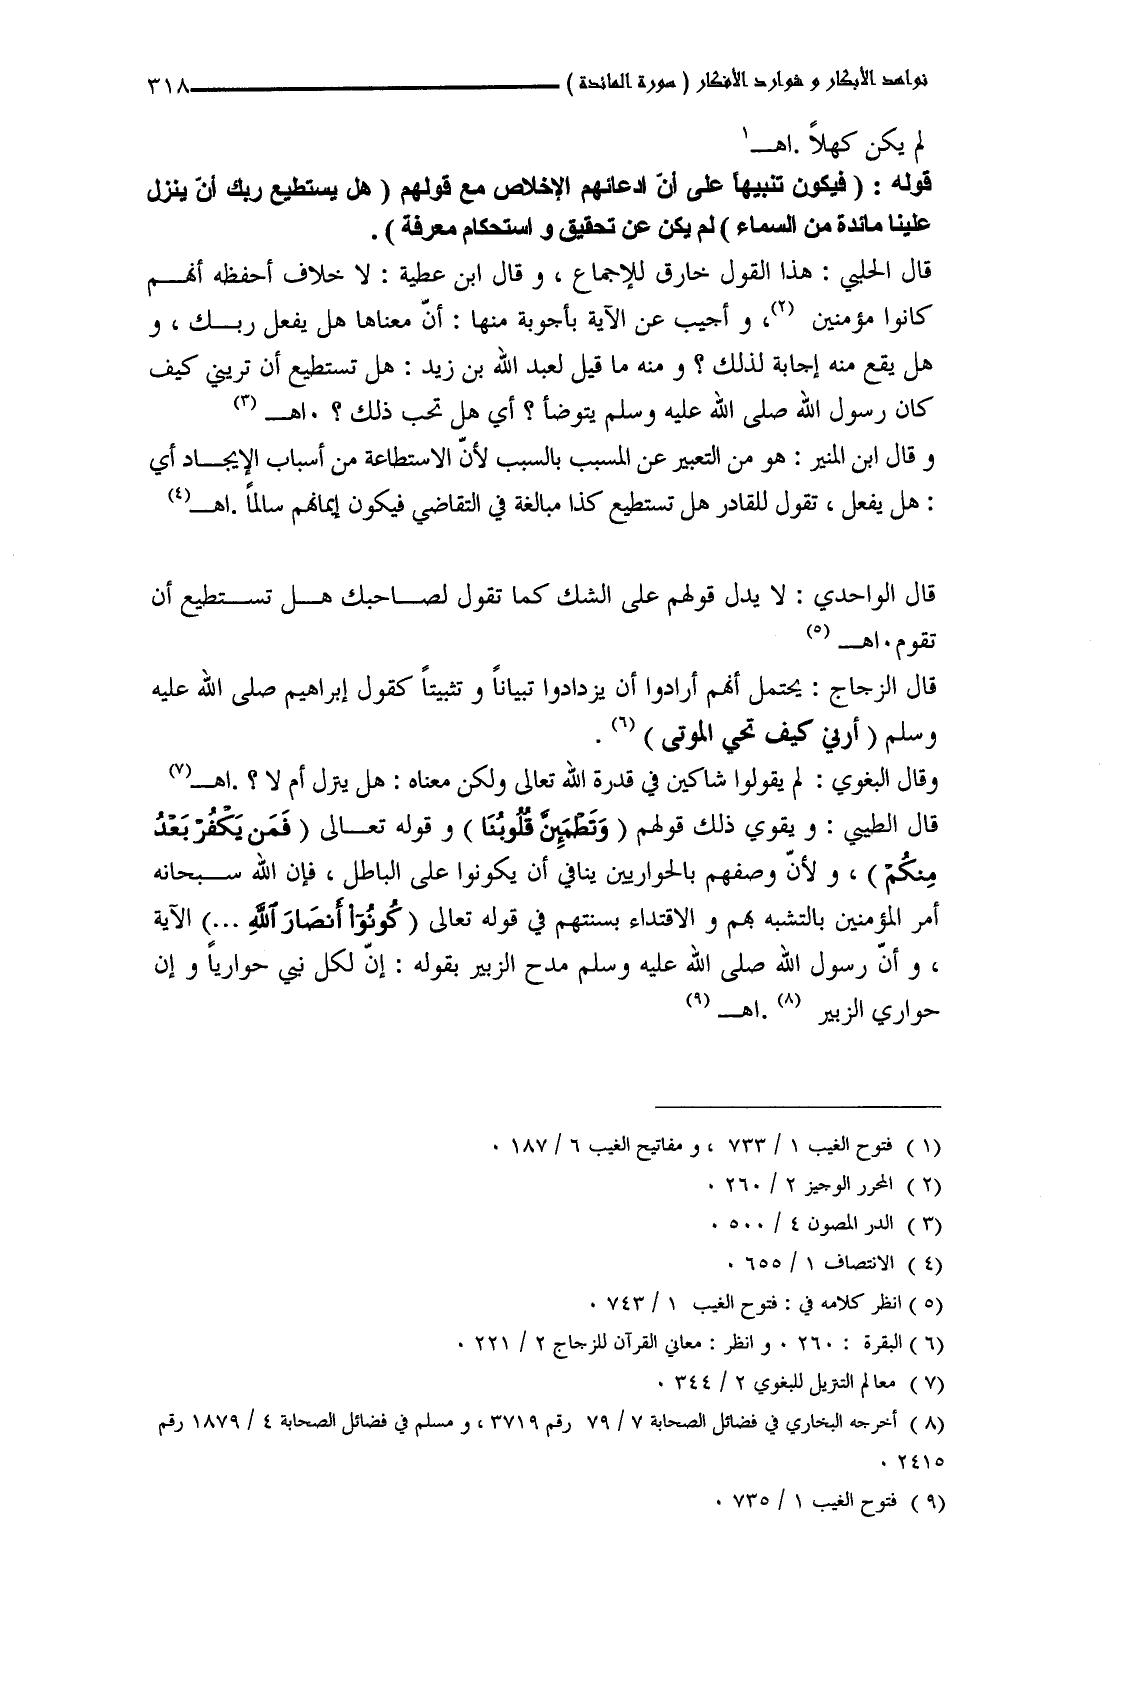 نواهد الأبكار و شوارد الأفكار ( سورة المائدة ) ٣١٨
لم يكن كهلاً .اهـ١
قوله : ( فيكون تنبيهاً على أنّ ادعائهم الإخلاص مع قولهم ( هل يستطيع ربك أنّ ينزل
علينا مائدة من السماء ) لم يكن عن تحقيق و استحكام معرفة ) .
قال الحلبي : هذا القول خارق للإجماع ، و قال ابن عطية : لا خلاف أحفظه أنهم
كانوا مؤمنين (٢)، و أجيب عن الآية بأجوبة منها : أنّ معناها هل يفعل ربك ، و
هل يقع منه إجابة لذلك ؟ و منه ما قيل لعبد الله بن زيد : هل تستطيع أن تريني كيف
كان رسول الله صلى الله عليه وسلم يتوضأ ؟ أي هل تحب ذلك ؟ ٠اهـ (٣)
و قال ابن المنير : هو من التعبير عن المسبب بالسبب لأنّ الاستطاعة من أسباب الإيجاد أي
: هل يفعل ، تقول للقادر هل تستطيع كذا مبالغة في التقاضي فيكون إيمانهم سالماً .اهـ(٤)
قال الواحدي : لا يدل قولهم على الشك كما تقول لصاحبك هل تستطيع أن
تقوم٠اهـ (٥)
قال الزجاج : يحتمل أنهم أرادوا أن يزدادوا تبياناً و تثبيتاً كقول إبراهيم صلى الله عليه
وسلم ( أرني كيف تحي الموتى ) (٦) .
وقال البغوي : لم يقولوا شاكين في قدرة الله تعالى ولكن معناه : هل ينزل أم لا ؟ .اهـ(٧)
قال الطيبي : و يقوي ذلك قولهم ( وَتَطْمَئِنَّ قُلُوبُنَا ) و قوله تعالى ( فَمَن يَكْفُرْ بَعْدُ
مِنكُمْ ) ، و لأنّ وصفهم بالحواريين ينافي أن يكونوا على الباطل ، فإن الله سبحانه
أمر المؤمنين بالتشبه بهم و الاقتداء بسنتهم في قوله تعالى ( كُونُوٓا۟ أَنصَارَ ٱللَّهِ ...) الآية
، و أنّ رسول الله صلى الله عليه وسلم مدح الزبير بقوله : إنّ لكل نبي حوارياً و إن
حواري الزبير (٨) .اهـ (٩)
(١ ) فتوح الغيب ١ / ٧٣٣ ، و مفاتيح الغيب ٦ / ١٨٧ ٠
(٢ ) المحرر الوجيز ٢ / ٢٦٠ ٠
(٣ ) الدر المصون ٤ / ٥٠٠ ٠
(٤ ) الانتصاف ١ / ٦٥٥ ٠
(٥ ) انظر كلامه في : فتوح الغيب ١ / ٧٤٣ ٠
(٦ ) البقرة : ٢٦٠ ٠ و انظر : معاني القرآن للزجاج ٢ / ٢٢١ ٠
(٧ ) معالم التنزيل للبغوي ٢ / ٣٤٤ ٠
(٨ ) أخرجه البخاري في فضائل الصحابة ٧ / ٧٩ رقم ٣٧١٩ ، و مسلم في فضائل الصحابة ٤ / ١٨٧٩ رقم
٢٤١٥ ٠
(٩ ) فتوح الغيب ١ / ٧٣٥ ٠